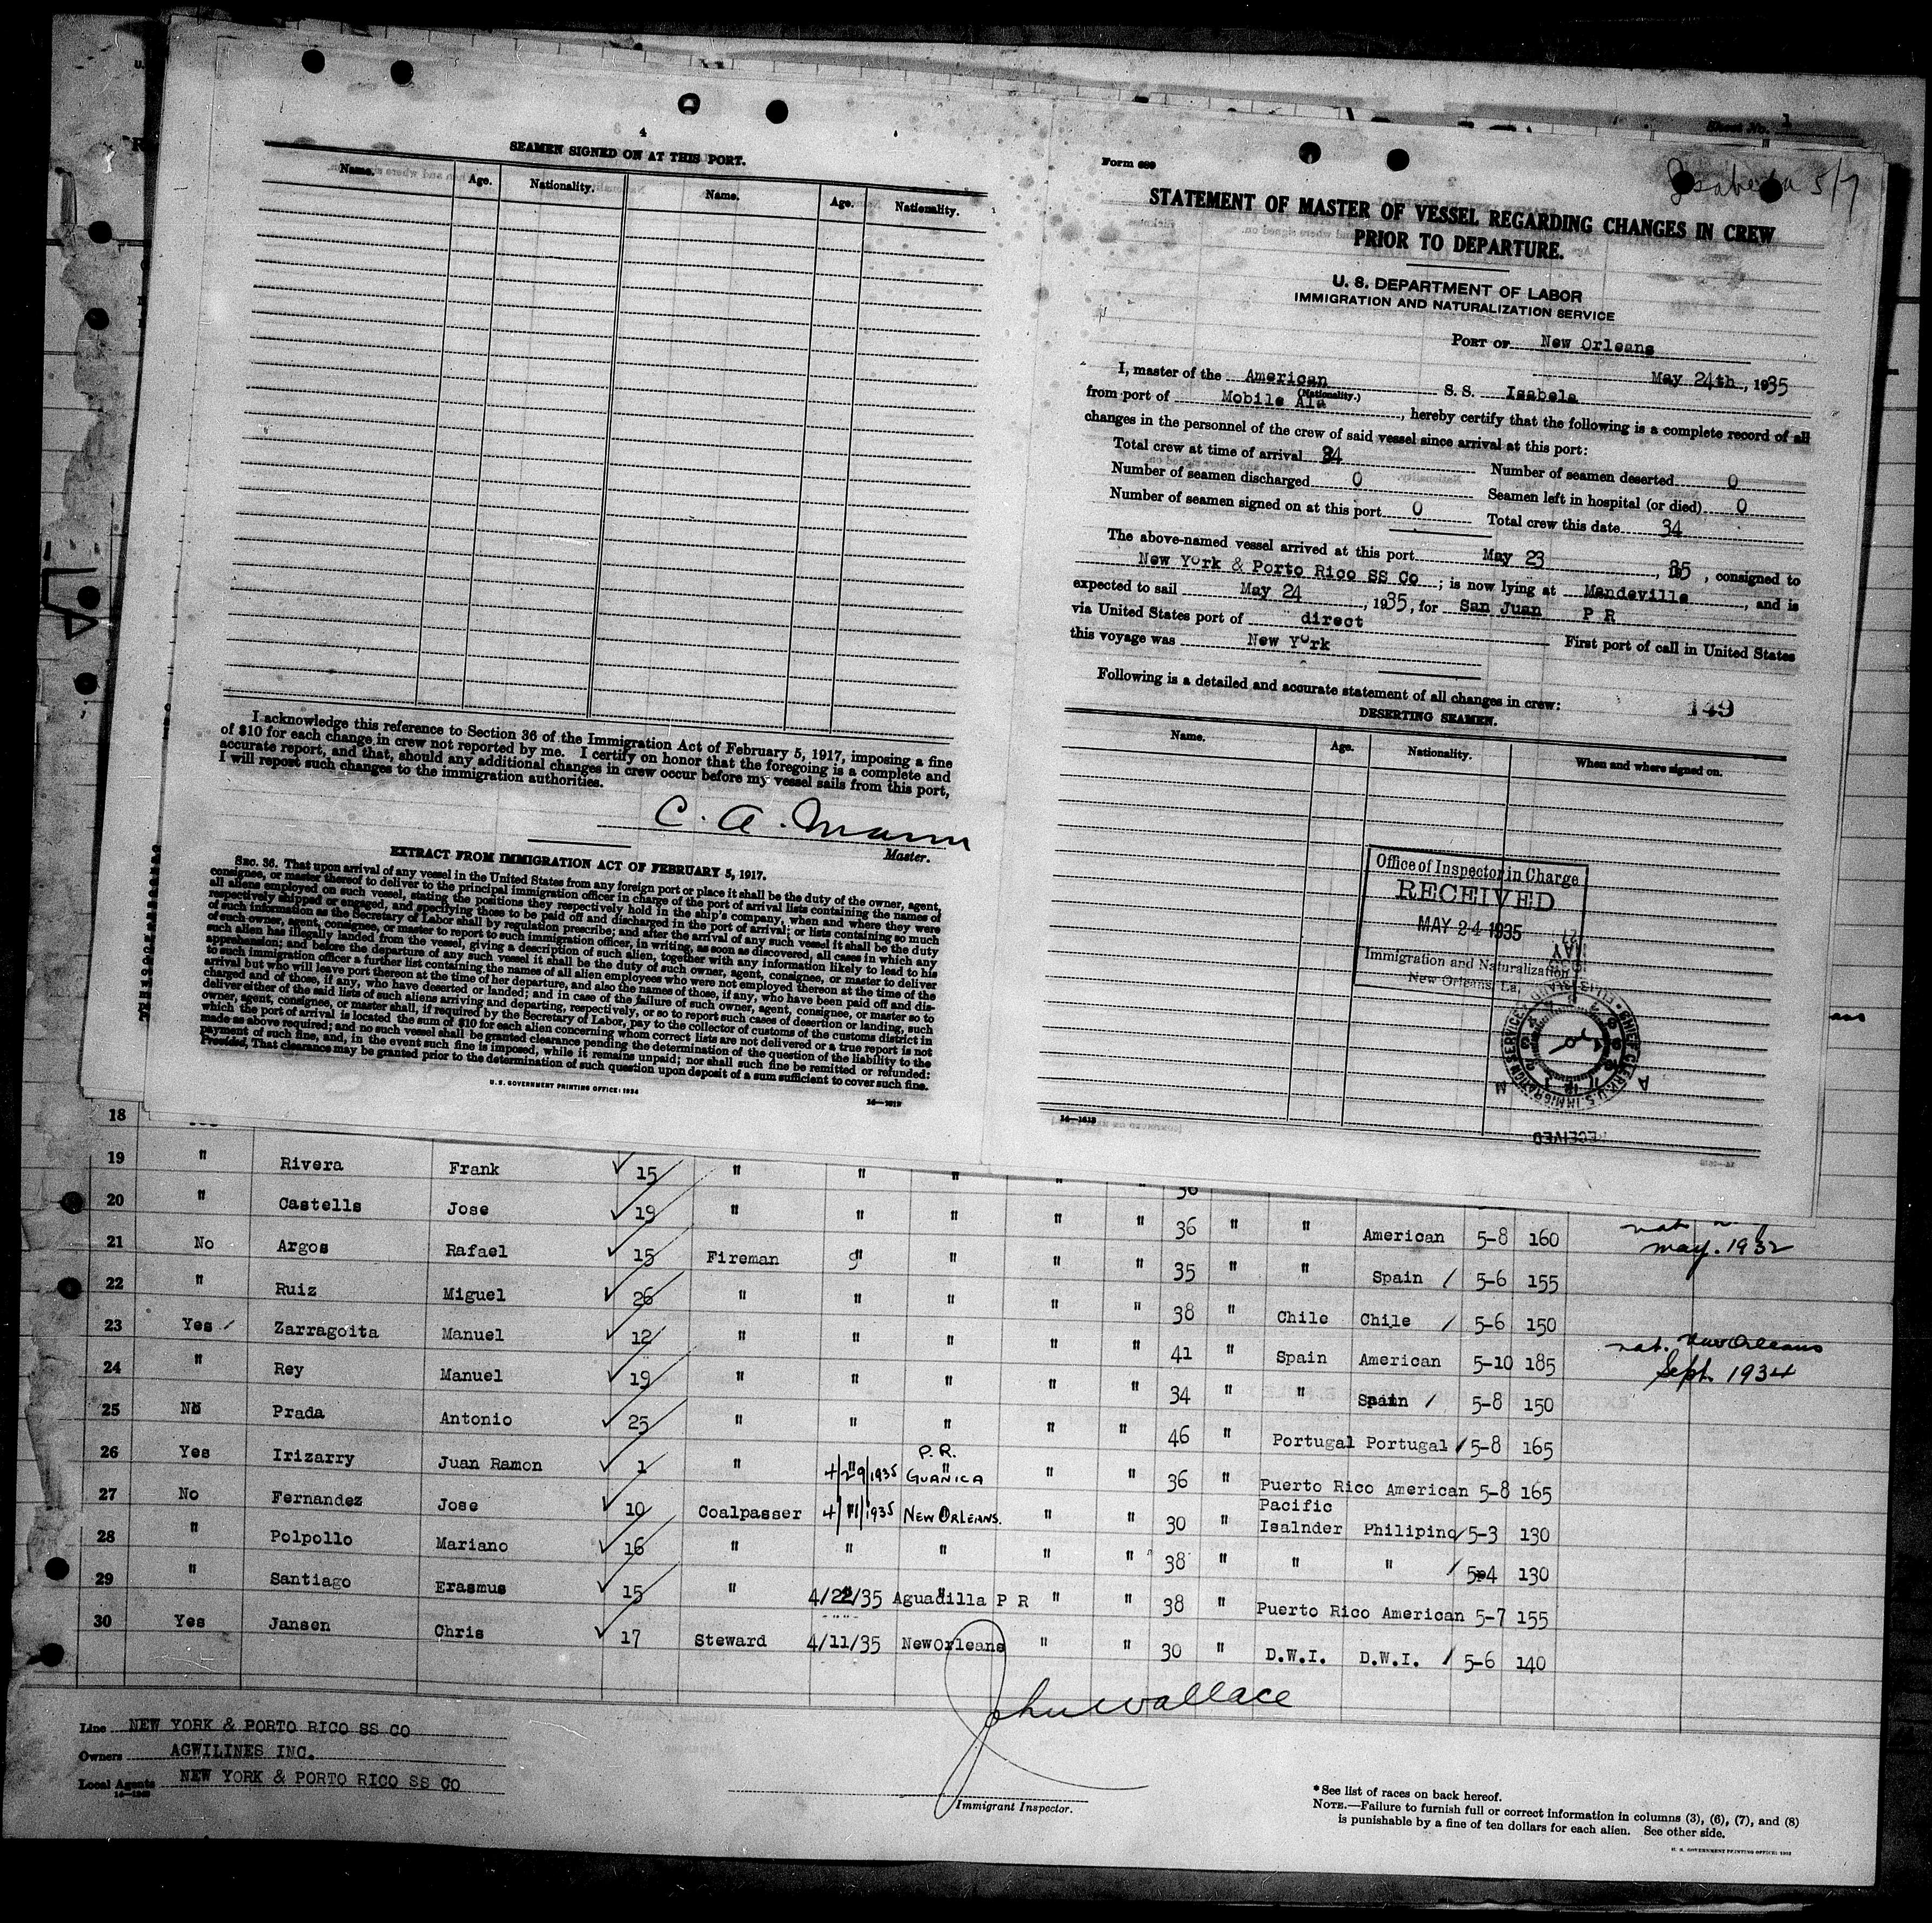 4
SEAMEN SIGNED ON AT THIS PORT.
Name. Age. Nationality. Name. Age. Nationality.
I acknowledge this reference to Section 36 of the Immigration Act of February 5, 1917, imposing a fine
of $10 for each change in crew not reported by me. I certify on honor that the foregoing is a complete and
accurate report, and that, should any additional changes in crew occur before my vessel sails from this port,
I will report such changes to the immigration authorities.
C. A. Mann
Master.
EXTRACT FROM IMMIGRATION ACT OF FEBRUARY 5, 1917.
SEC. 36. That upon arrival of any vessel in the United States from any foreign port or place it shall be the duty of the owner, agent,
consignee, or master thereof to deliver to the principal immigration officer in charge of the port of arrival lists containing the names of
all aliens employed on such vessel, stating the positions they respectively hold in the ship's company, when and where they were
respectively shipped or engaged, and specifying those to be paid off and discharged in the port of arrival; or lists containing so much
of such information as the Secretary of Labor shall by regulation prescribe; and after the arrival of any such vessel it shall be the duty
of such owner, agent, consignee, or master to report to such immigration officer, in writing, as soon as discovered, all cases in which any
such alien has illegally landed from the vessel, giving a description of such alien, together with any information likely to lead to his
apprehension; and before the departure of any such vessel it shall be the duty of such owner, agent, consignee, or master to deliver
to such immigration officer a further list containing the names of all alien employees who were not employed thereon at the time of the
arrival but who will leave port thereon at the time of her departure, and also the names of those, if any, who have been paid off and dis-
charged and of those, if any, who have deserted or landed; and in case of the failure of such owner, agent, consignee, or master so to
deliver either of the said lists of such aliens arriving and departing, respectively, or so to report such cases of desertion or landing, such
owner, agent, consignee, or master shall, if required by the Secretary of Labor, pay to the collector of customs of the customs district in
which the port of arrival is located the sum of $10 for each alien concerning whom correct lists are not delivered or a true report is not
made as above required; and no such vessel shall be granted clearance pending the determination of the question of the liability to the
payment of such fine, and, in the event such fine is imposed, while it remains unpaid; nor shall such fine be remitted or refunded:
Provided, That clearance may be granted prior to the determination of such question upon deposit of a sum sufficient to cover such fine.
U. S. GOVERNMENT PRINTING OFFICE: 1934
Sheet No. 1
Form 689
Isabela 5/7
STATEMENT OF MASTER OF VESSEL REGARDING CHANGES IN CREW
PRIOR TO DEPARTURE.
U. S. DEPARTMENT OF LABOR
IMMIGRATION AND NATURALIZATION SERVICE
PORT OF New Orleans
May 24th, 1935
I, master of the American S. S. Isabela
(Nationality.)
from port of Mobile Ala, hereby certify that the following is a complete record of all
changes in the personnel of the crew of said vessel since arrival at this port:
Total crew at time of arrival 34 Number of seamen deserted 0
Number of seamen discharged 0 Seamen left in hospital (or died) 0
Number of seamen signed on at this port 0 Total crew this date 34
The above-named vessel arrived at this port May 23, 35, consigned to
New York & Porto Rico SS Co; is now lying at Mandeville, and is
expected to sail May 24, 1935, for San Juan P R
via United States port of direct
First port of call in United States
this voyage was New York
Following is a detailed and accurate statement of all changes in crew:
149
DESERTING SEAMEN.
Name. Age. Nationality. When and where signed on.
Office of Inspector in Charge
RECEIVED
MAY 24 1935
Immigration and Naturalization
New Orleans, La.
18
19 " Rivera Frank 15 " " " " "
20 " Castells Jose 19 " " " " " 36 " " American 5-8 160
may. 1932
21 No Argos Rafael 15 Fireman 9" " " " 35 " " Spain / 5-6 155
22 " Ruiz Miguel 26 " " " " " 38 " Chile Chile / 5-6 150
23 Yes / Zarragoita Manuel 12 " " " " " 41 " Spain American 5-10 185 nat. New Orleans
Sept. 1934
24 " Rey Manuel 19 " " " " " 34 " " Spain / 5-8 150
25 No Prada Antonio 25 " " " " " 46 " Portugal Portugal / 5-8 165
26 Yes Irizarry Juan Ramon 1 " 4/29/1935 P.R. GUANICA " " 36 " Puerto Rico American 5-8 165
27 No Fernandez Jose 10 Coalpasser 4/11/1935 NEW ORLEANS. " " 30 " Pacific Isalnder Philipino / 5-3 130
28 " Polpollo Mariano 16 " " " " " 38 " " " / 5-4 130
29 " Santiago Erasmus 15 " 4/22/35 Aguadilla P R " " 38 " Puerto Rico American 5-7 155
30 Yes Jansen Chris 17 Steward 4/11/35 NewOrleans " " 30 " D.W.I. D.W.I. / 5-6 140
John Wallace
Immigrant Inspector.
Line NEW YORK & PORTO RICO SS CO
Owners AGWILINES INC.
Local Agents NEW YORK & PORTO RICO SS CO
*See list of races on back hereof.
NOTE.—Failure to furnish full or correct information in columns (3), (6), (7), and (8)
is punishable by a fine of ten dollars for each alien. See other side.